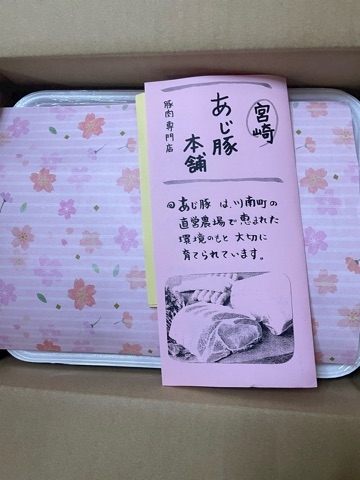 宮崎
あじ豚
本舗
豚肉専門店
あじ豚は、川南町の
直営農場で恵まれた
環境のもと大切に
育てられています。